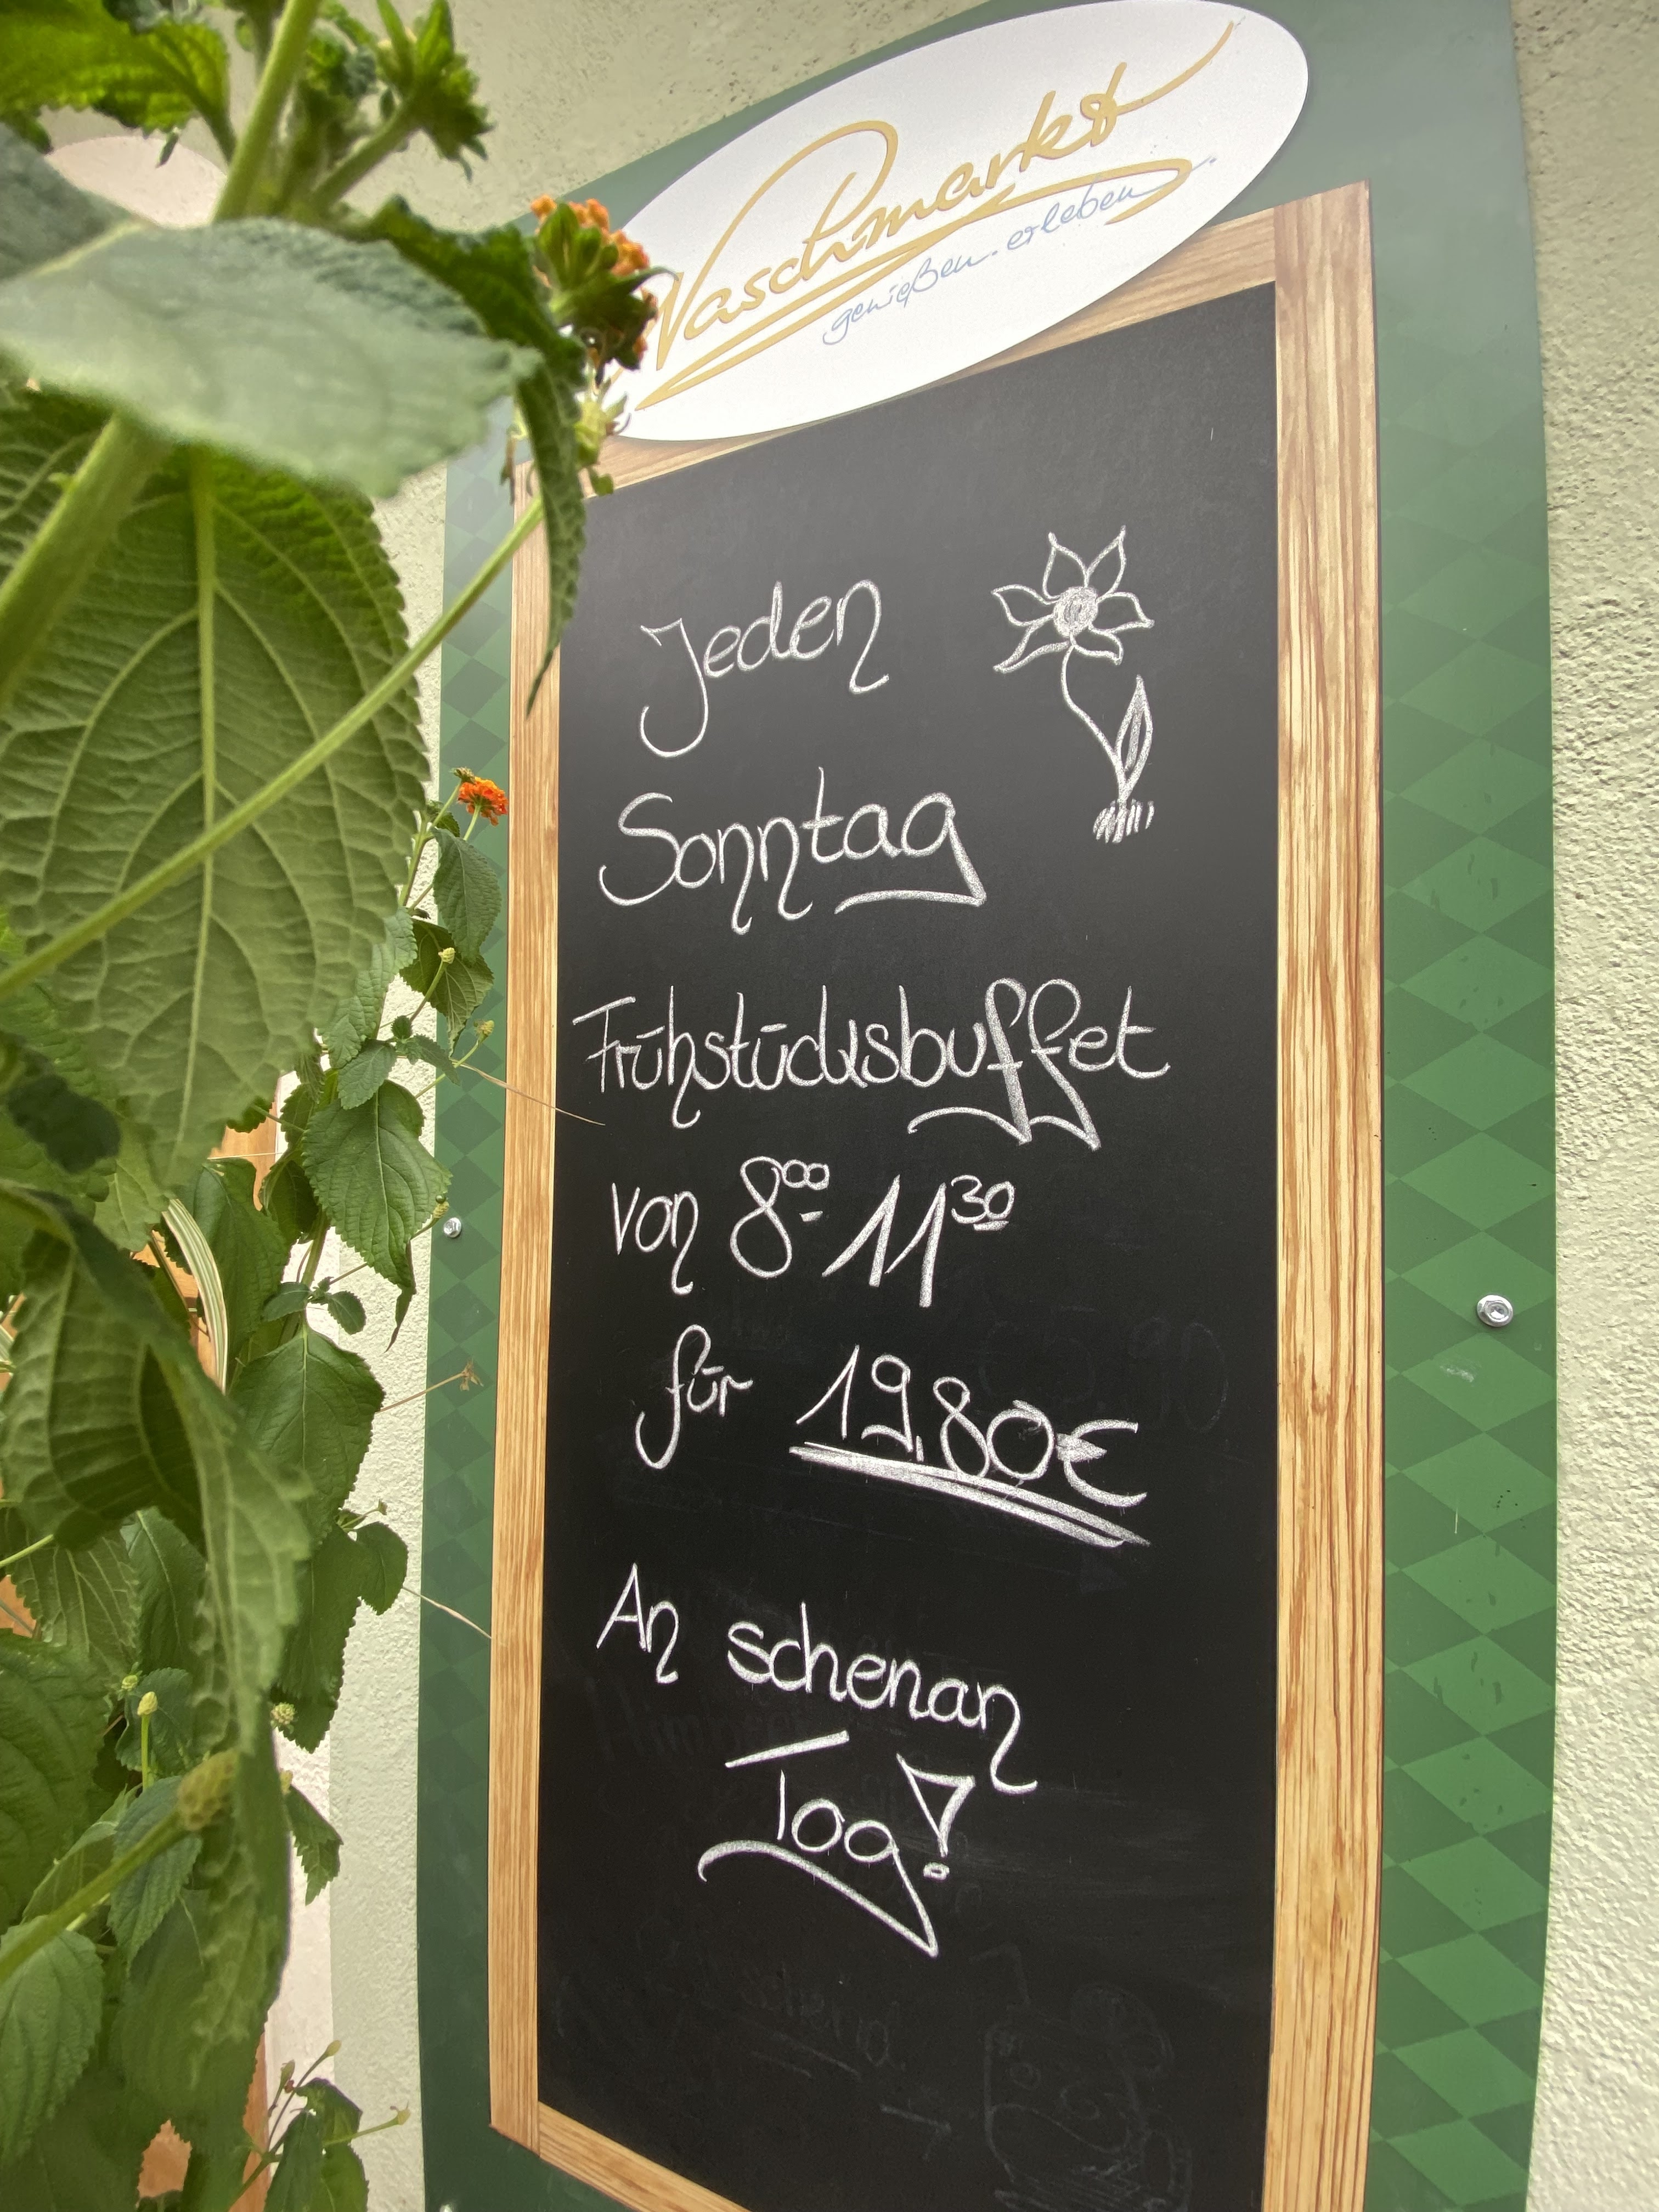 Naschmarkt
genießen. erleben.
Jeden
Sonntag
Frühstücksbuffet
von 8⁰⁰- 11³⁰
für 19,80€
An schenan
Tog!